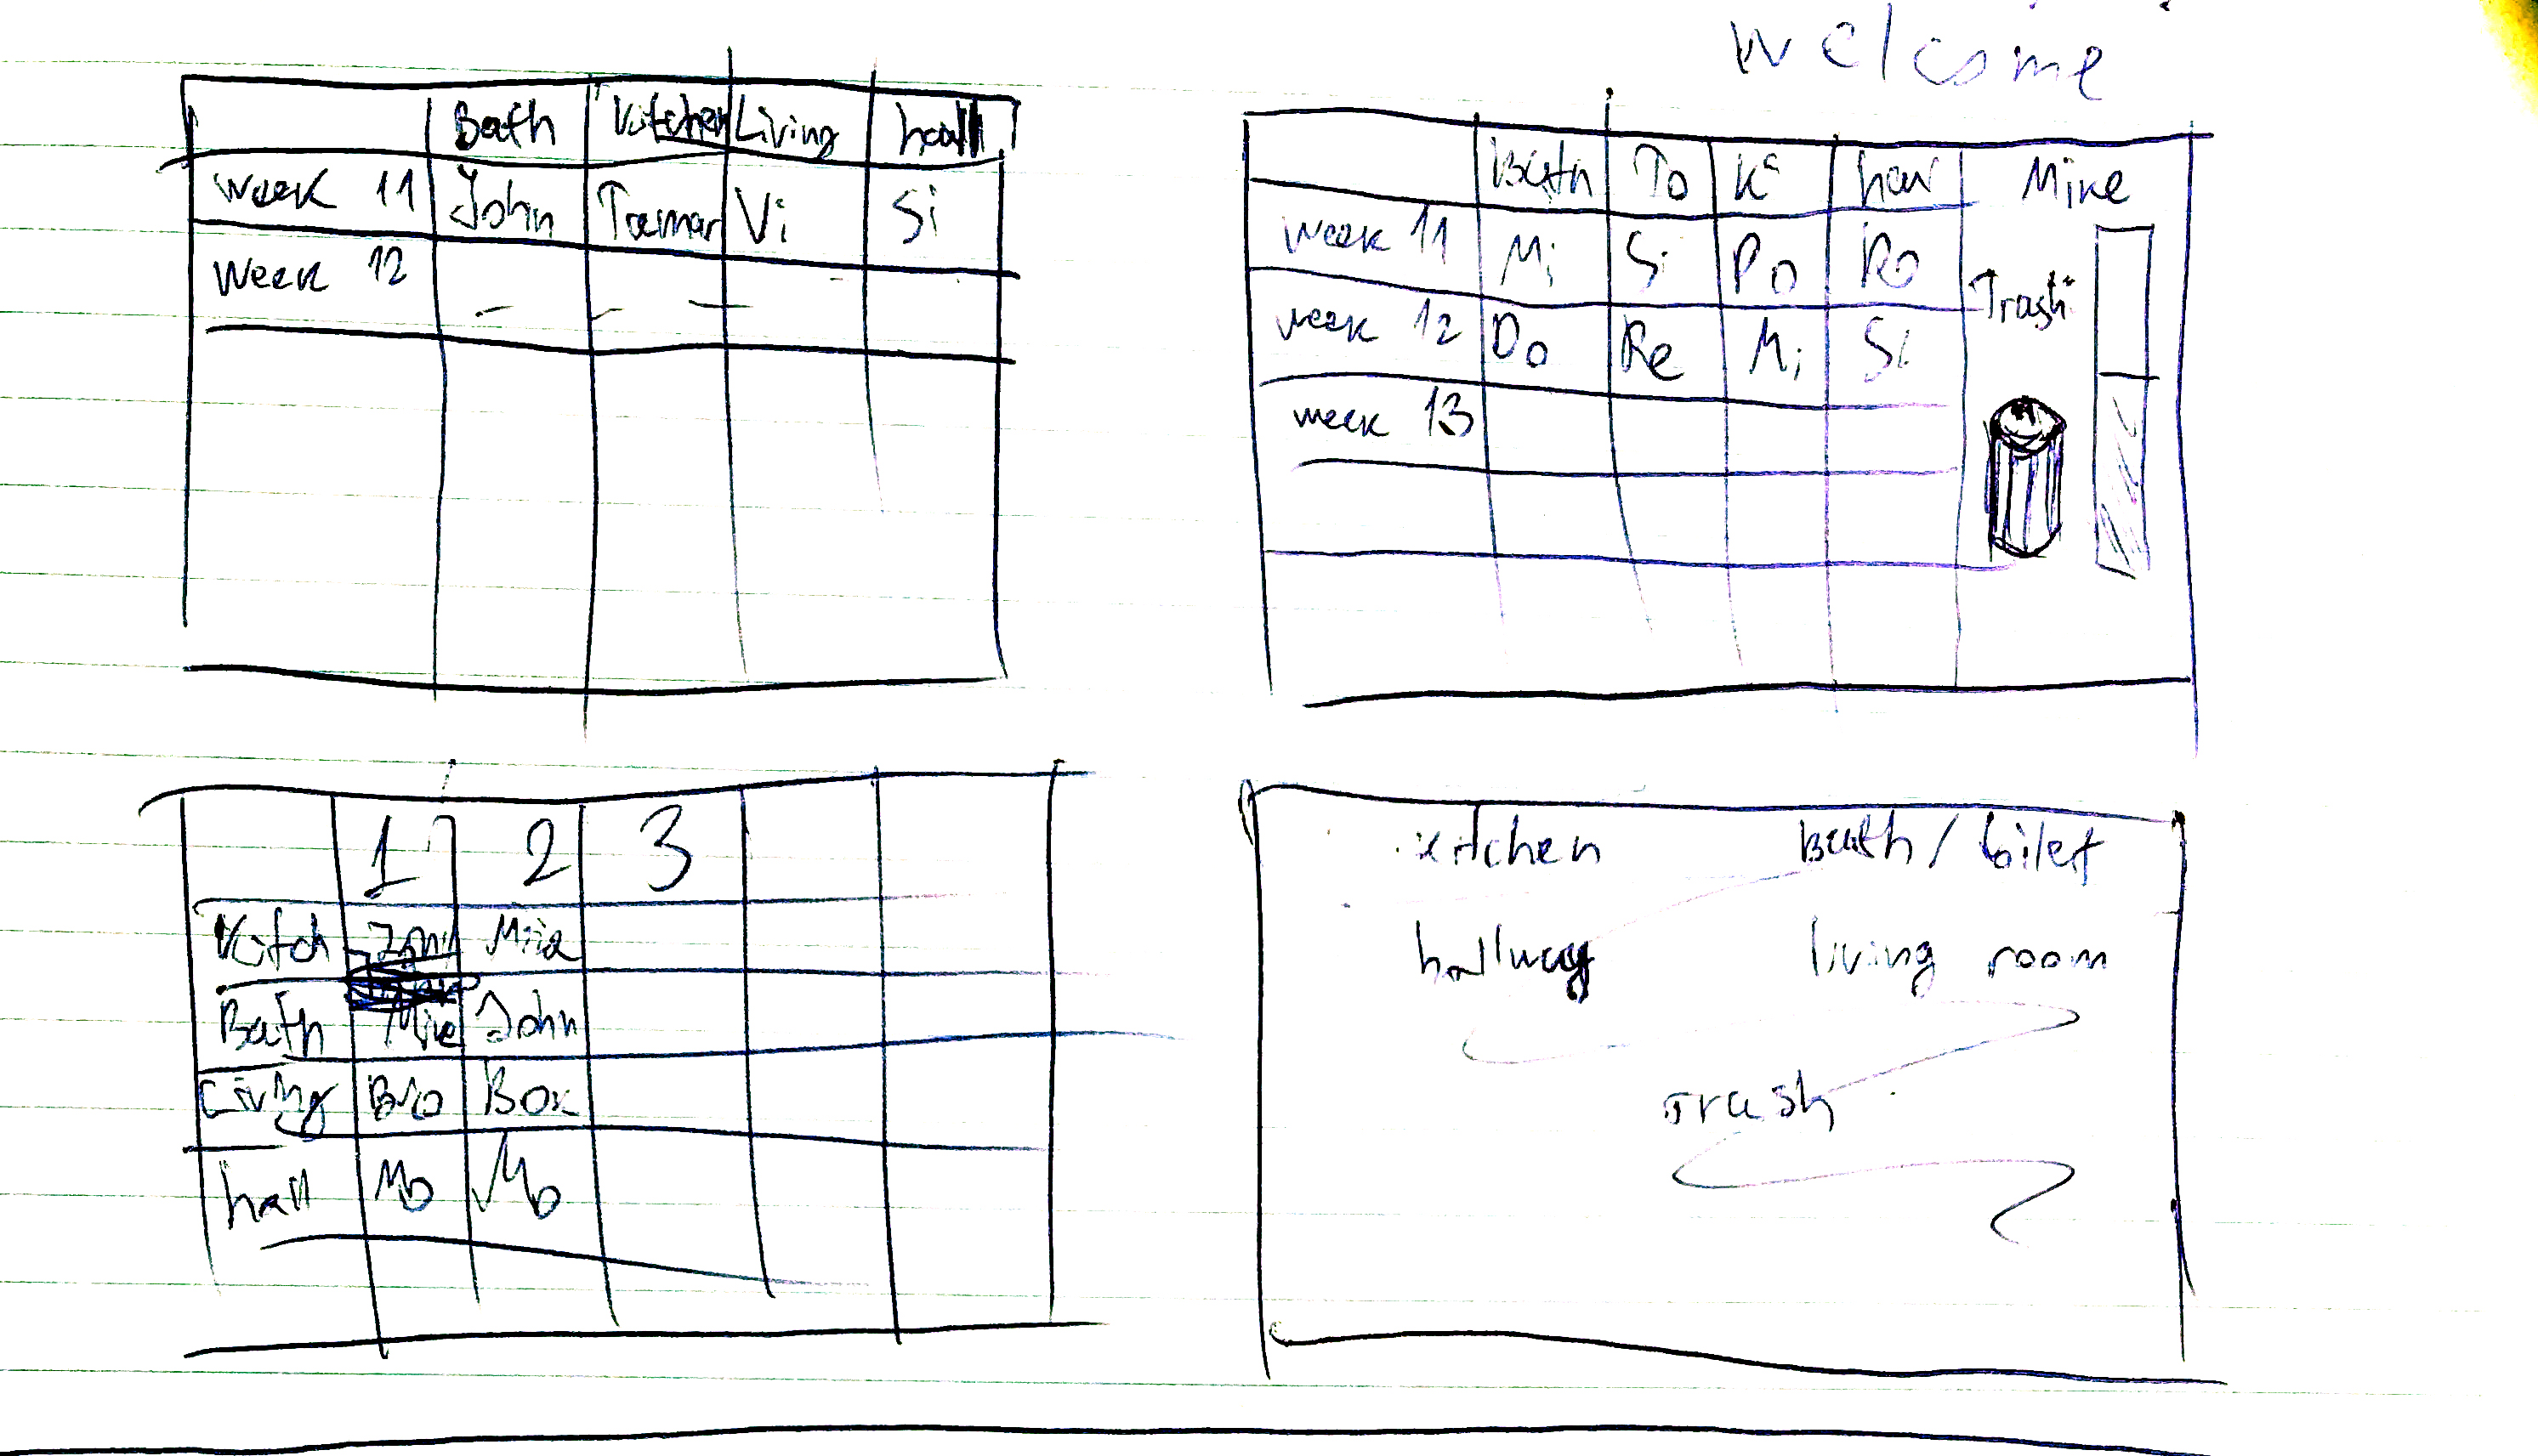 Welcome
Bath Kitchen Living hall
Week 11 John Tamar Vi Si
Week 12
Bath To Ki hal Mike
Week 11 Mi Si Do Ro
Trash
week 12 Do Re Mi Si
week 13
1 2 3
Kitch Mia
Bath Mike John
Living Bro Box
hall Mo Mo
kitchen bath / toilet
hallway living room
Trash